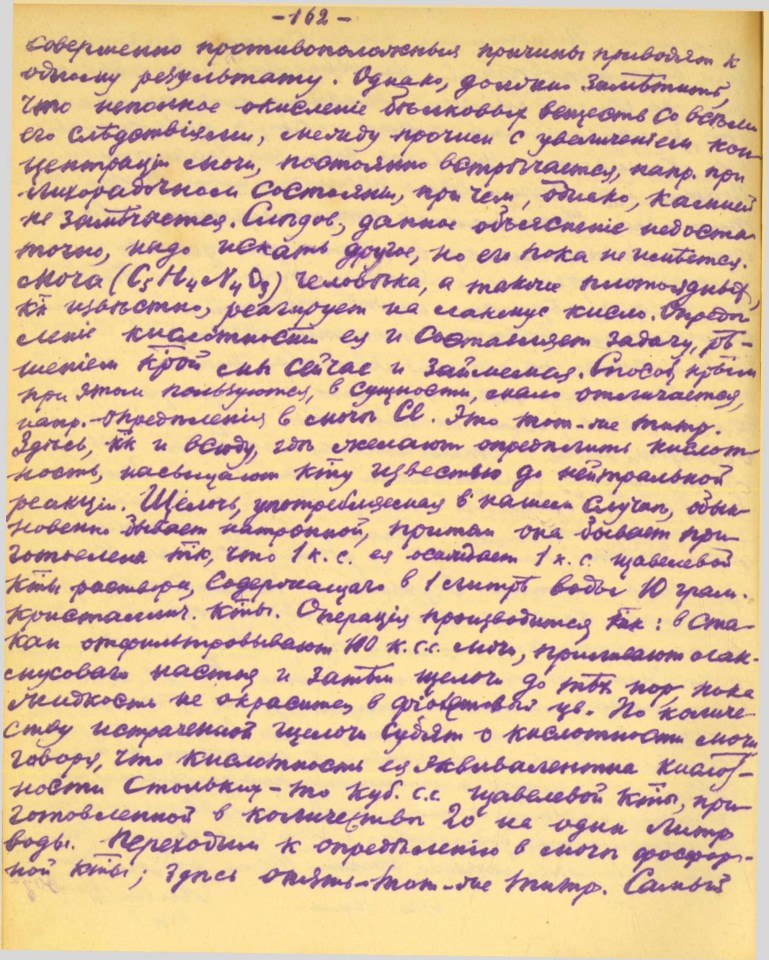 -162-
совершенно противоположныя причины приводят к
одному результату. Однако, должно замѣтить,
что неполное окисленіе бѣлковых веществ со всѣми
его слѣдствіями, между прочим с увеличеніем кон-
центраціи мочи, постоянно встрѣчается, напр. при
лихорадочном состояніи, при чем, однако, камней
не замѣчается. Слѣдов., данное объясненіе недоста-
точно, надо искать другое, но его пока не имѣется.
Моча (C5H4N4O3) человѣка, а также плотоядных,
кк извѣстно, реагирует на лакмус кисло. Опредѣ-
леніе кислотности ея и составляет задачу, рѣ-
шеніем крой мы сейчас и займемся. Способ, крым
при этом пользуются, в сущности, мало отличается,
напр. - опредѣленія в мочѣ Cl. Это тот-же титр.
Здѣсь, кк и всюду, гдѣ желают опредѣлить кислот-
ность, насыщают кту известью до нейтральной
реакціи. Щелочь, употребляемая в нашем случаѣ, обык-
новенно бывает натронной, притом она бывает при-
готовлена тк, что 1 к.с. ея осаждает 1 к.с. щавелевой
кты раствора, содержащаго в 1 литрѣ воды 10 грам.
кристаллич. кты. Операція производится так: в ста-
кан отфильтровывают 100 к.с.с. мочи, приливают лак-
мусоваго настоя и затѣм щелочи до тѣх пор, пока
жидкость не окрасится в фіолетовый цв. По количе-
ству истраченной щелочи судят о кислотности мочи,
говоря, что кислотность ея эквивалентна кислот-
ности стольких-то куб. с.с. щавелевой кты, при-
готовленной в количествѣ 20 на один литр
воды. Переходим к опредѣленію в мочѣ фосфор-
ной кты; здѣсь опять-тот-же титр. Самый